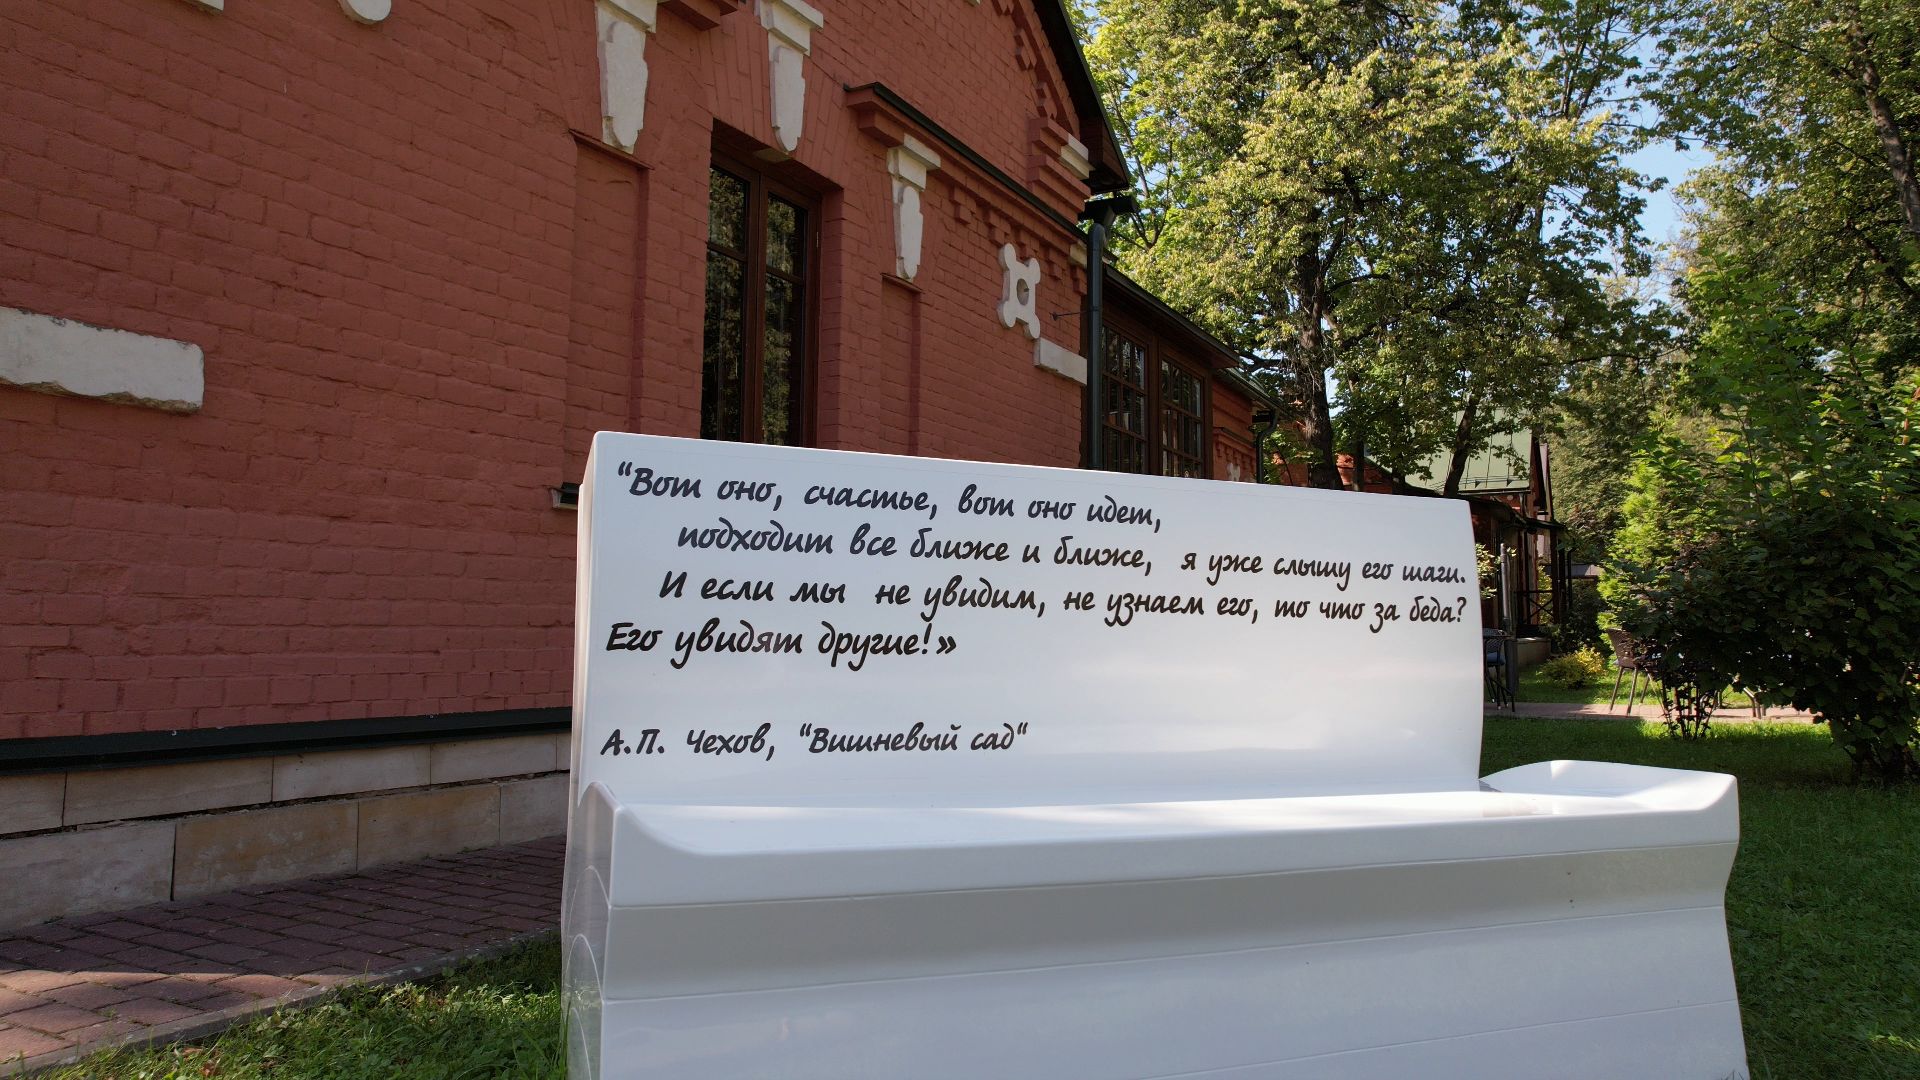 “Вот оно, счастье, вот оно идет,
подходит все ближе и ближе, я уже слышу его шаги.
И если мы не увидим, не узнаем его, то что за беда?
Его увидят другие!»
А.П. Чехов, “Вишневый сад“